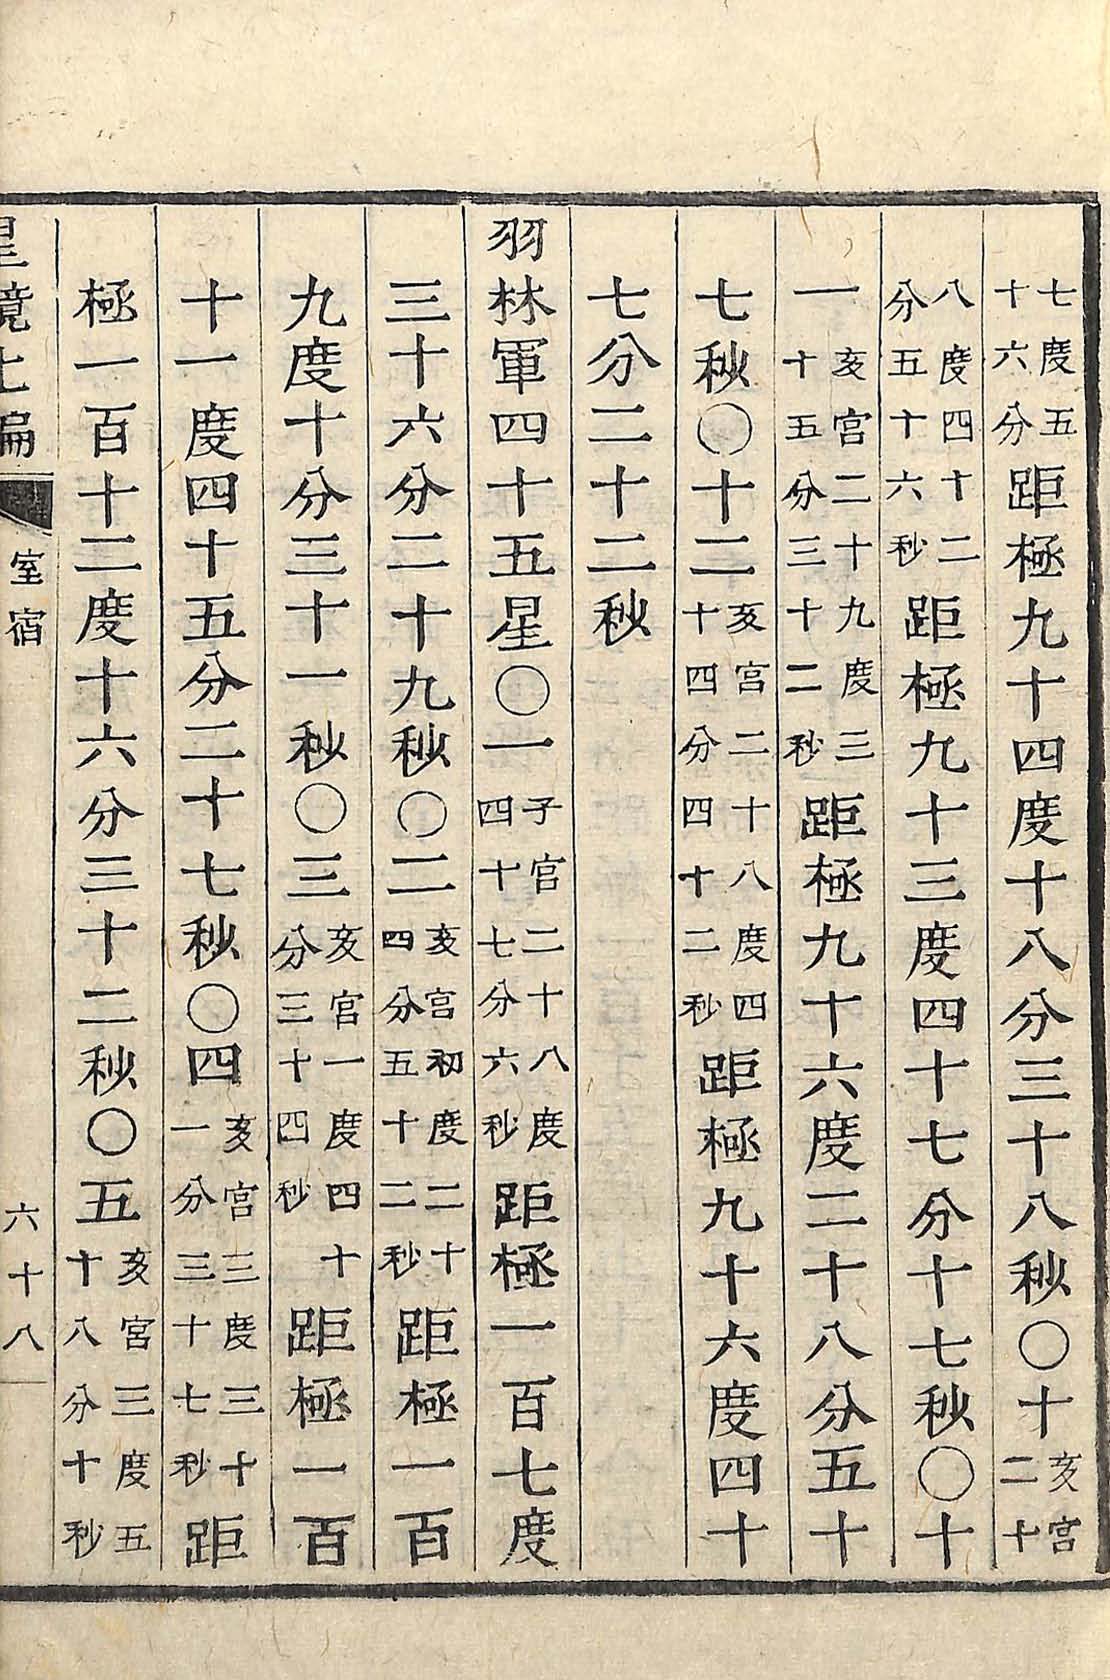 七度五十六分距極九十四度十八分三十八秒〇十亥宮二十
八度四十二分五十六秒距極九十三度四十七分十七秒〇十
一亥宮二十九度三十五分三十二秒距極九十六度二十八分五十
七秒〇十二亥宮二十八度四十四分四十二秒距極九十六度四十
七分二十二秒
羽林軍四十五星〇一子宮二十八度四十七分六秒距極一百七度
三十六分二十九秒〇二亥宮初度二十四分五十二秒距極一百
九度十分三十一秒〇三亥宮一度四十分三十四秒距極一百
十一度四十五分二十七秒〇四亥宮三度三十一分三十七秒距
極一百十二度十六分三十二秒〇五亥宮三度五十八分十秒
星鏡上編
室宿
六十八